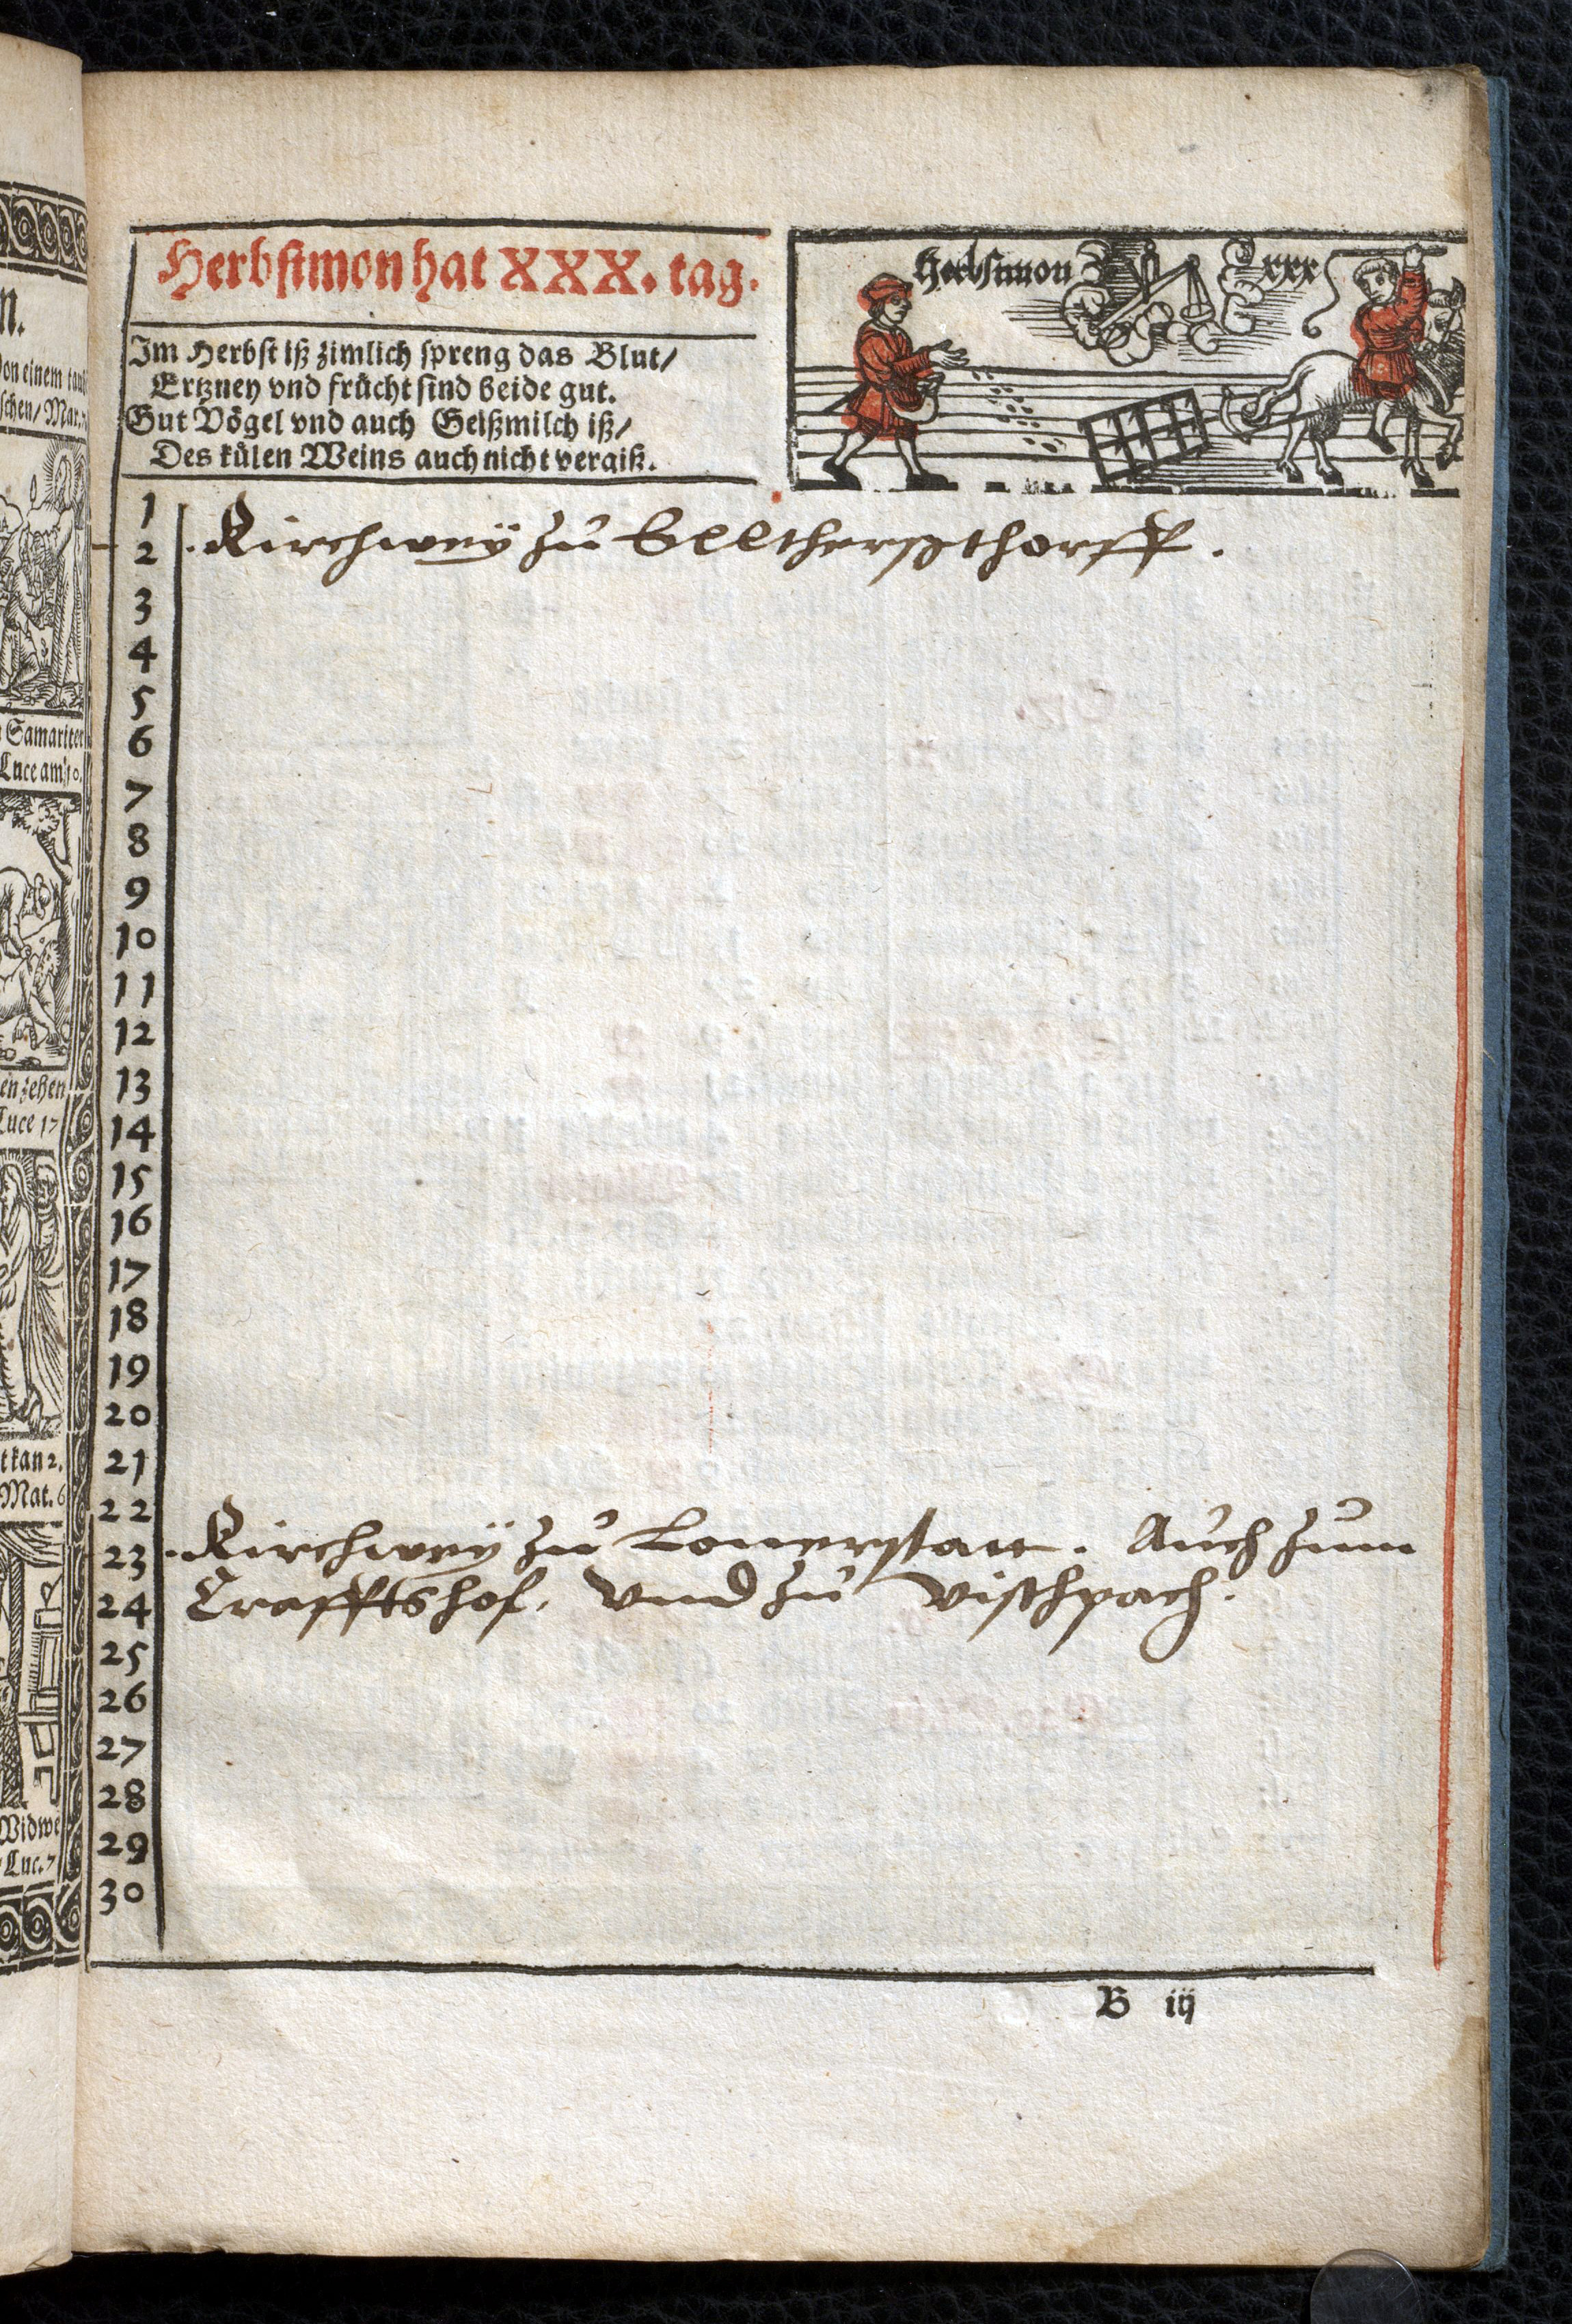 Herbstmon hat XXX. tag.
Im Herbst iß zimlich spreng das Blut/
Ertzney vnd frücht sind beide gut.
Gut Vögel vnd auch Geißmilch iß/
Des külen Weins auch nicht vergiß.
Herbstmon xxx
1
2 Kirchweÿ zů Elltherßthorff.
3
4
5
6
7
8
9
10
11
12
13
14
15
16
17
18
19
20
21
22
23 Kirchweÿ zů Lonerstatt. Auch zum
24 Crafftshof, vnd zů vischpach.
25
26
27
28
29
30
B iij
n.
Von einem
schen/ Mar. 7
Samariter
Luce am 10.
en zehen
Luce 17
t kan 2.
Mat. 6
Widwe
Luc. 7